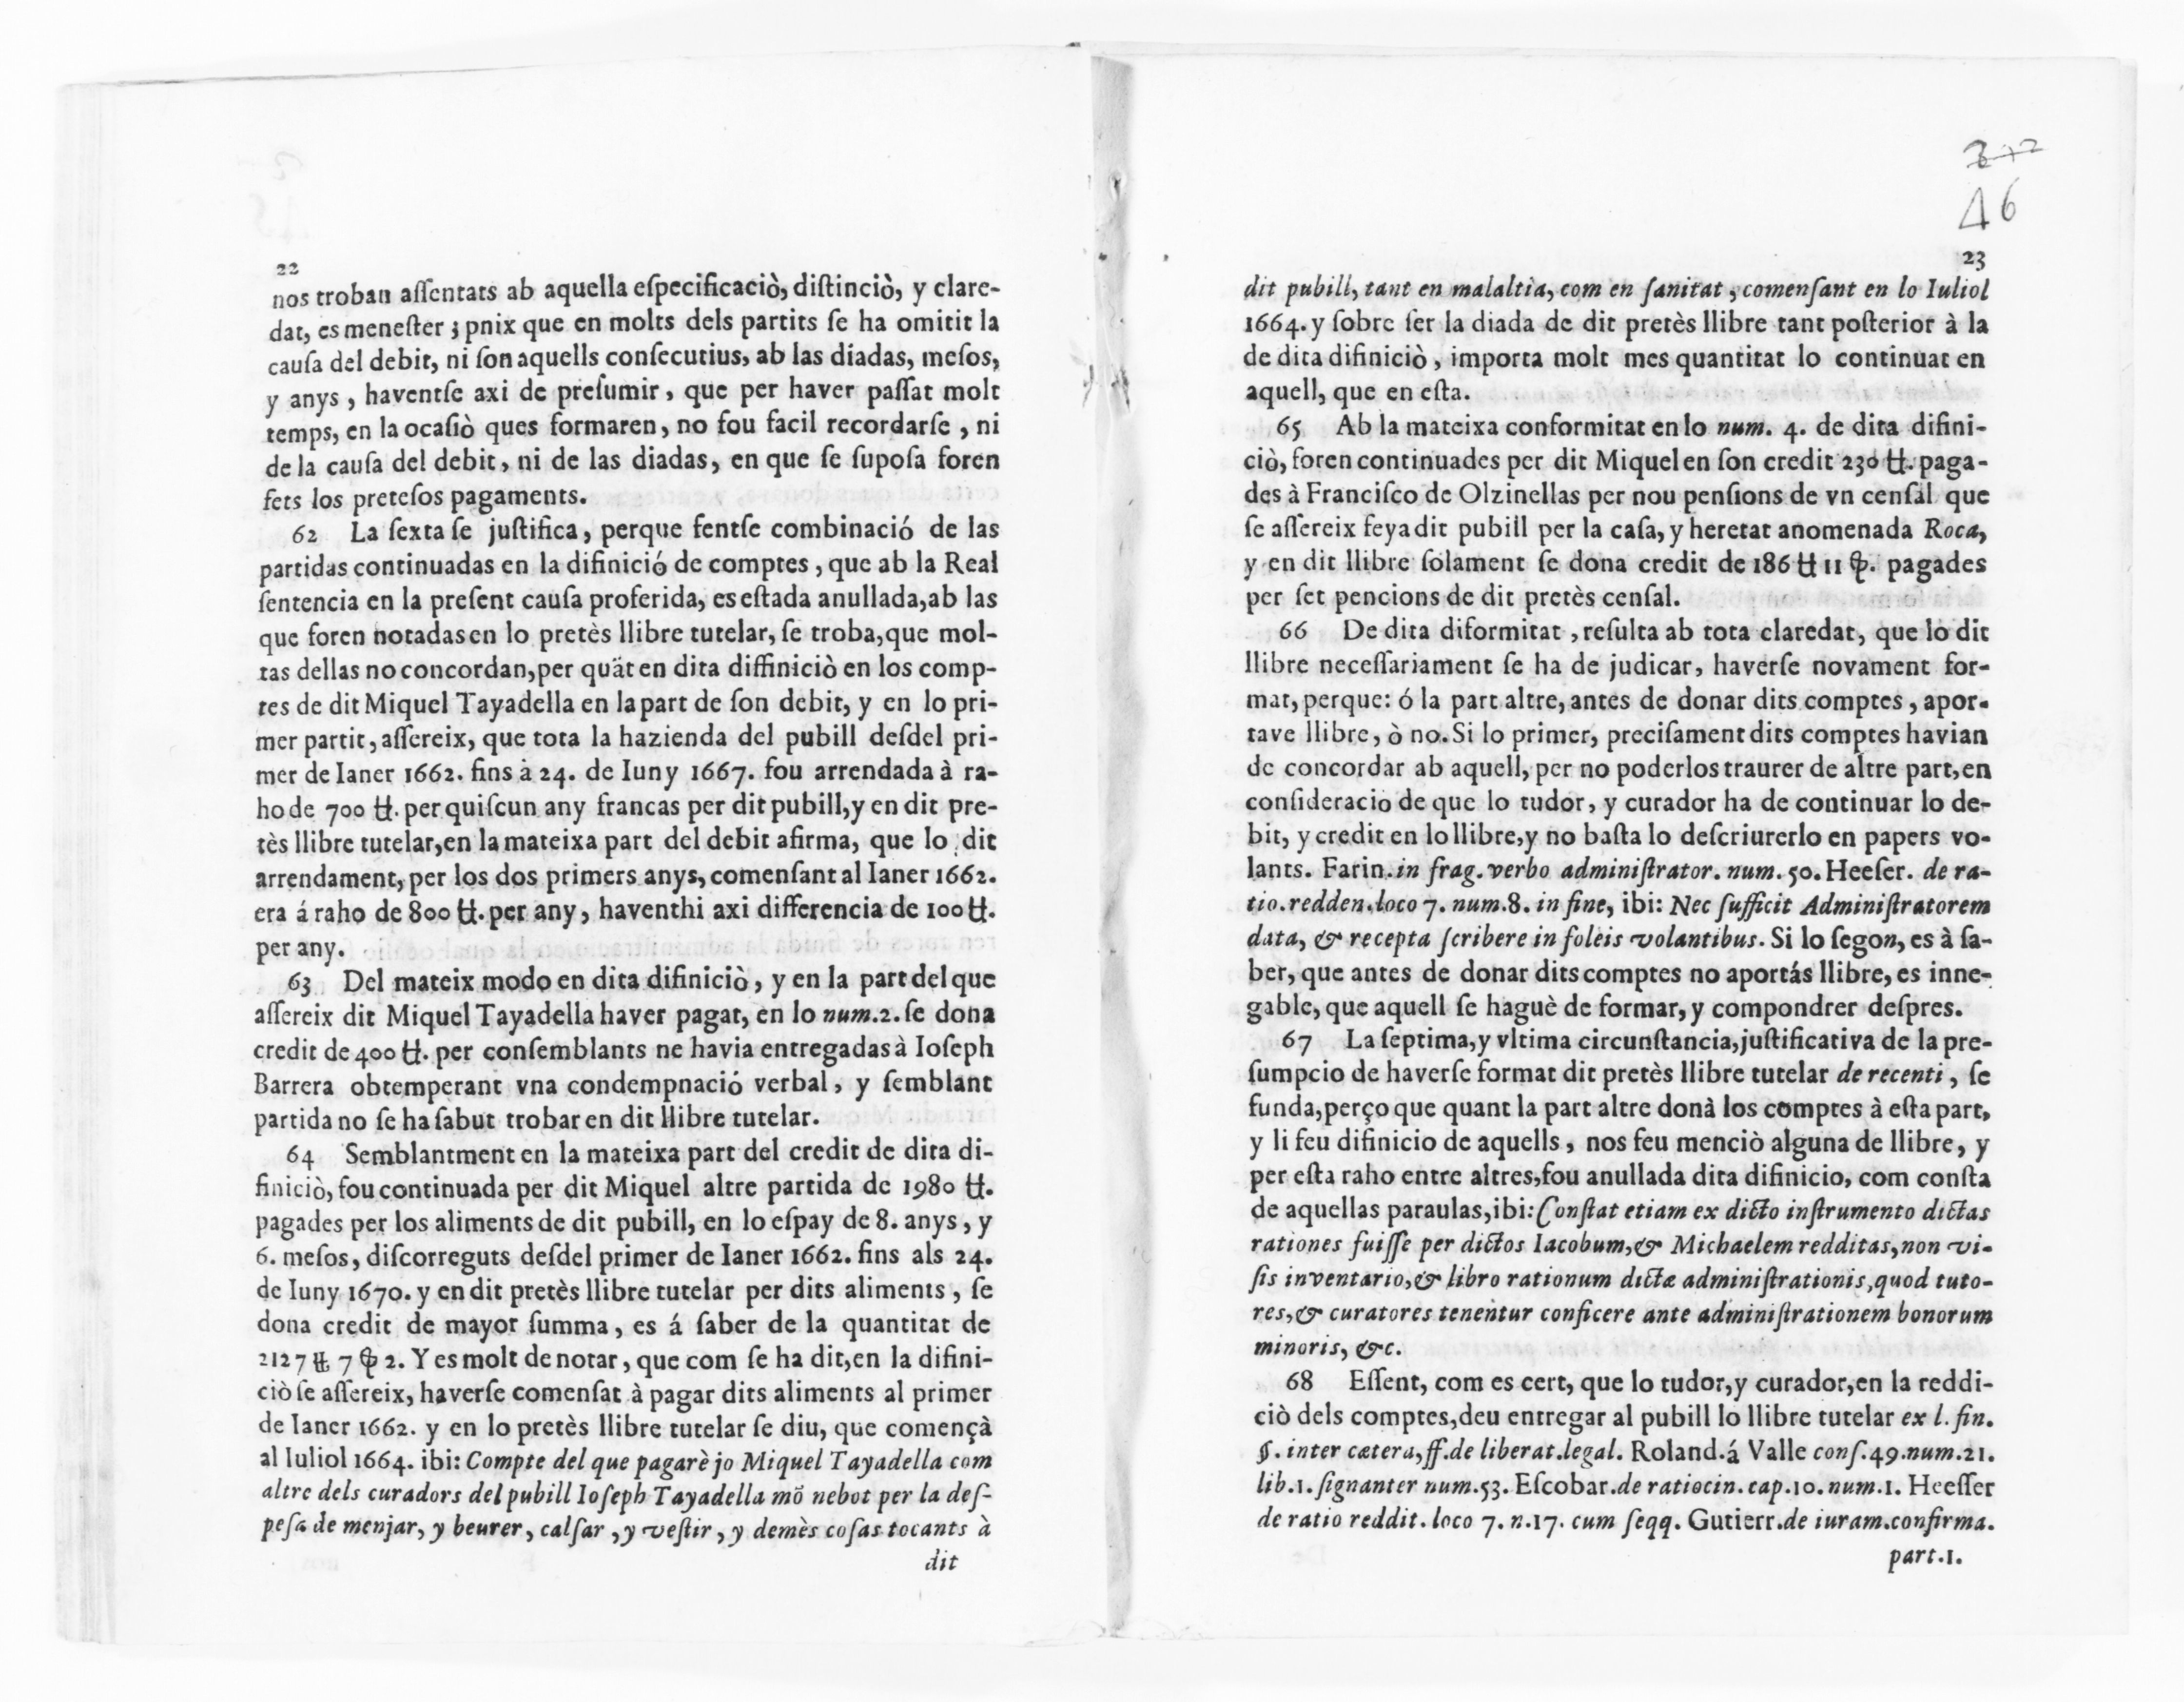 22
nos troban aſſentats ab aquella eſpecificaciò, diſtinciò, y clare-
dat, es meneſter; pnix que en molts dels partits ſe ha omitit la
cauſa del debit, ni ſon aquells conſecutius, ab las diadas, meſos,
y anys, haventſe axi de preſumir, que per haver paſſat molt
temps, en la ocaſiò ques formaren, no fou facil recordarſe, ni
de la cauſa del debit, ni de las diadas, en que ſe ſupoſa foren
fets los preteſos pagaments.
62 La ſexta ſe juſtifica, perque fentſe combinació de las
partidas continuadas en la difinició de comptes, que ab la Real
ſentencia en la preſent cauſa proferida, es eſtada anullada, ab las
que foren notadas en lo pretès llibre tutelar, ſe troba, que mol-
tas dellas no concordan, per quãt en dita diffiniciò en los comp-
tes de dit Miquel Tayadella en la part de ſon debit, y en lo pri-
mer partit, aſſereix, que tota la hazienda del pubill deſdel pri-
mer de Ianer 1662. fins à 24. de Iuny 1667. fou arrendada à ra-
ho de 700 ₶. per quiſcun any francas per dit pubill, y en dit pre-
tès llibre tutelar, en la mateixa part del debit afirma, que lo dit
arrendament, per los dos primers anys, comenſant al Ianer 1662.
era á raho de 800 ₶. per any, haventhi axi differencia de 100 ₶.
per any.
63 Del mateix modo en dita difiniciò, y en la part del que
aſſereix dit Miquel Tayadella haver pagat, en lo num.2. ſe dona
credit de 400 ₶. per conſemblants ne havia entregadas à Ioſeph
Barrera obtemperant vna condempnació verbal, y ſemblant
partida no ſe ha ſabut trobar en dit llibre tutelar.
64 Semblantment en la mateixa part del credit de dita di-
finiciò, fou continuada per dit Miquel altre partida de 1980 ₶.
pagades per los aliments de dit pubill, en lo eſpay de 8. anys, y
6. meſos, diſcorreguts deſdel primer de Ianer 1662. fins als 24.
de Iuny 1670. y en dit pretès llibre tutelar per dits aliments, ſe
dona credit de mayor ſumma, es á ſaber de la quantitat de
2127 ₶ 7 ꝭ 2. Y es molt de notar, que com ſe ha dit, en la difini-
ciò ſe aſſereix, haverſe comenſat à pagar dits aliments al primer
de Ianer 1662. y en lo pretès llibre tutelar ſe diu, que començà
al Iuliol 1664. ibi: Compte del que pagarè jo Miquel Tayadella com
altre dels curadors del pubill Ioſeph Tayadella mõ nebot per la deſ-
peſa de menjar, y beurer, calſar, y veſtir, y demès coſas tocants à
dit
46
23
dit pubill, tant en malaltia, com en ſanitat, comenſant en lo Iuliol
1664. y ſobre ſer la diada de dit pretès llibre tant poſterior à la
de dita difiniciò, importa molt mes quantitat lo continuat en
aquell, que en eſta.
65 Ab la mateixa conformitat en lo num. 4. de dita difini-
ciò, foren continuades per dit Miquel en ſon credit 230 ₶. paga-
des à Franciſco de Olzinellas per nou penſions de vn cenſal que
ſe aſſereix feya dit pubill per la caſa, y heretat anomenada Roca,
y en dit llibre ſolament ſe dona credit de 186 ₶ 11 ꝭ. pagades
per ſet pencions de dit pretès cenſal.
66 De dita diformitat, reſulta ab tota claredat, que lo dit
llibre neceſſariament ſe ha de judicar, haverſe novament for-
mat, perque: ó la part altre, antes de donar dits comptes, apor-
tave llibre, ò no. Si lo primer, preciſament dits comptes havian
de concordar ab aquell, per no poderlos traurer de altre part, en
conſideracio de que lo tudor, y curador ha de continuar lo de-
bit, y credit en lo llibre, y no baſta lo deſcriurerlo en papers vo-
lants. Farin. in frag. verbo adminiſtrator. num. 50. Heeſer. de ra-
tio. redden. loco 7. num.8. in fine, ibi: Nec ſufficit Adminiſtratorem
data, & recepta ſcribere in foleis volantibus. Si lo ſegon, es à ſa-
ber, que antes de donar dits comptes no aportás llibre, es inne-
gable, que aquell ſe haguè de formar, y compondrer deſpres.
67 La ſeptima, y vltima circunſtancia, juſtificativa de la pre-
ſumpcio de haverſe format dit pretès llibre tutelar de recenti, ſe
funda, perço que quant la part altre donà los comptes à eſta part,
y li feu difinicio de aquells, nos feu menciò alguna de llibre, y
per eſta raho entre altres, fou anullada dita difinicio, com conſta
de aquellas paraulas, ibi: Conſtat etiam ex dicto inſtrumento dictas
rationes fuiſſe per dictos Iacobum, & Michaelem redditas, non vi-
ſis inventario, & libro rationum dictæ adminiſtrationis, quod tuto-
res, & curatores tenentur conficere ante adminiſtrationem bonorum
minoris, &c.
68 Eſſent, com es cert, que lo tudor, y curador, en la reddi-
ciò dels comptes, deu entregar al pubill lo llibre tutelar ex l. fin.
§. inter cætera, ff. de liberat. legal. Roland. á Valle conſ. 49. num. 21.
lib.1. ſignanter num. 53. Eſcobar. de ratiocin. cap. 10. num. 1. Heeſſer
de ratio reddit. loco 7. n. 17. cum ſeqq. Gutierr. de iuram. confirma.
part. 1.